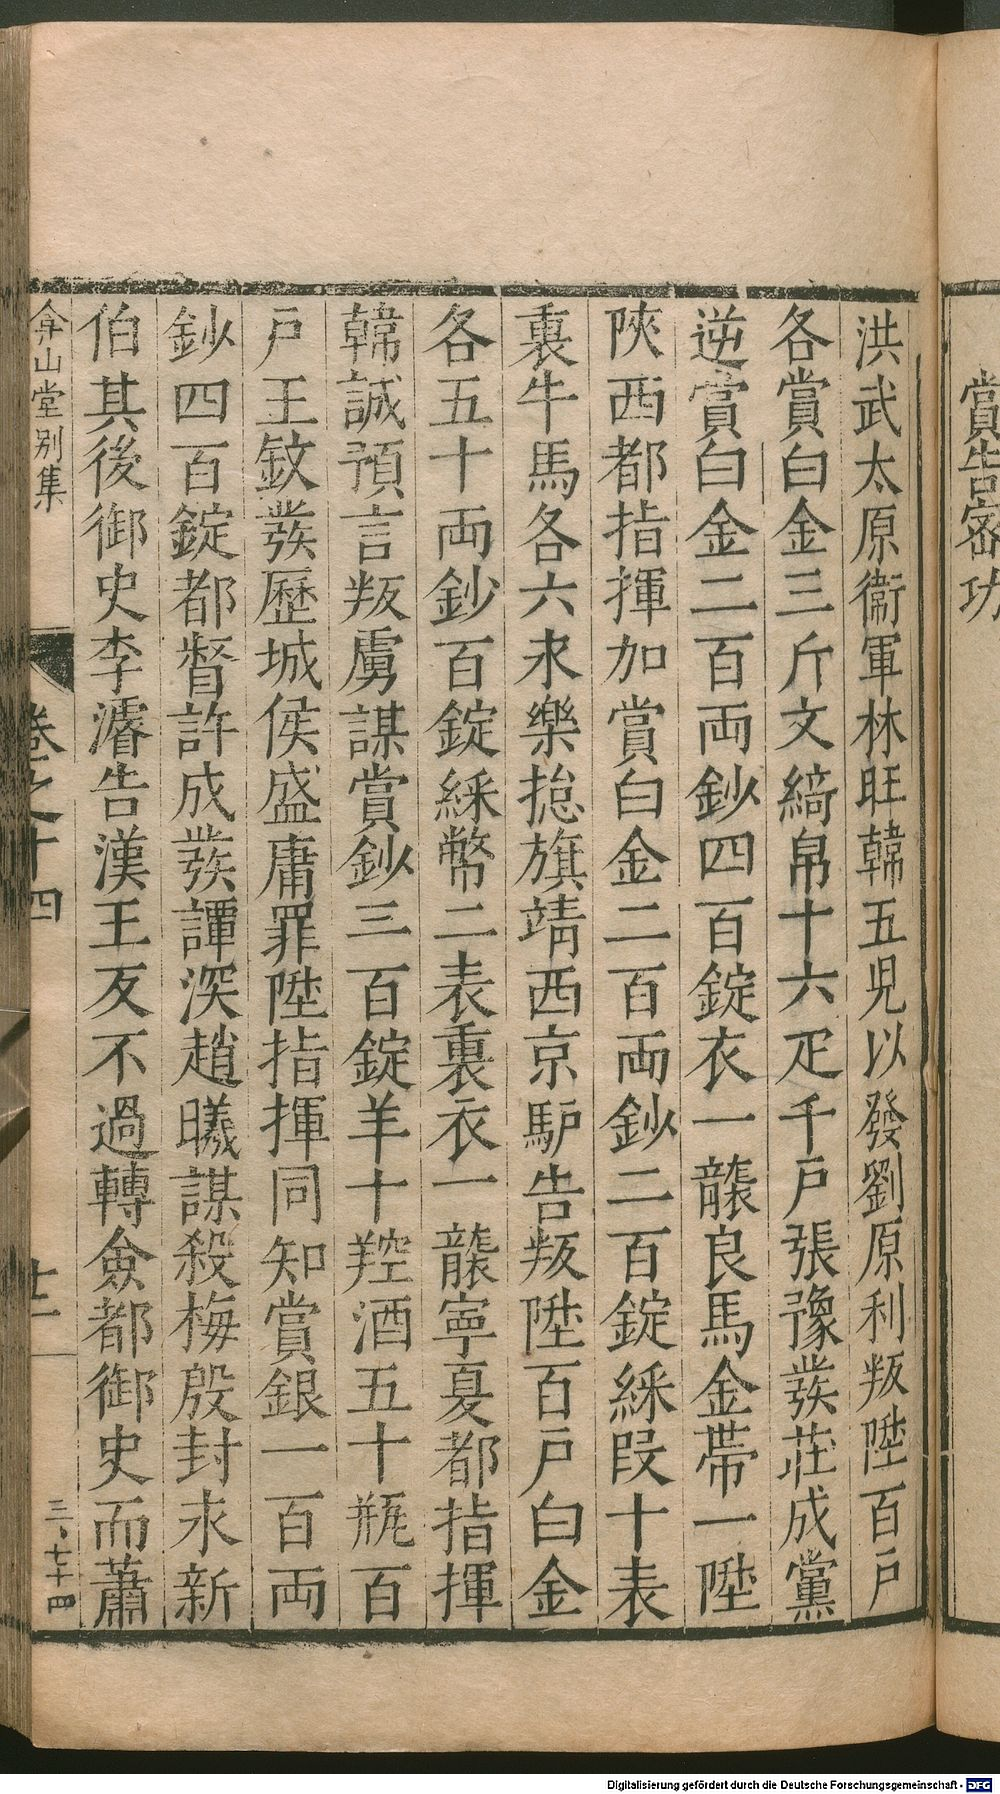 賞告密功
洪武太原衞軍林旺韓五児以發劉原利叛陞百戸
各賞白金三斤文綺帛十六疋千戸張豫發莊成黨
逆賞白金二百両鈔四百錠衣一襲良馬金帶一陞
陝西都指揮加賞白金二百両鈔二百錠綵叚十表
裏牛馬各六永樂揔旗靖西京馿告叛陞百戸白金
各五十両鈔百錠綵幣二表裏衣一襲寧夏都指揮
韓誠預言叛虜謀賞鈔三百錠羊十羫酒五十瓶百
戸王欽發歷城侯盛庸罪陞指揮同知賞銀一百両
鈔四百錠都督許成發譚深趙曦謀殺梅殷封永新
伯其後御史李濬告漢王反不過轉僉都御史而蕭
弇山堂别集 卷之十四 十二 三、七十四
Digitalisierung gefördert durch die Deutsche Forschungsgemeinschaft - DFG